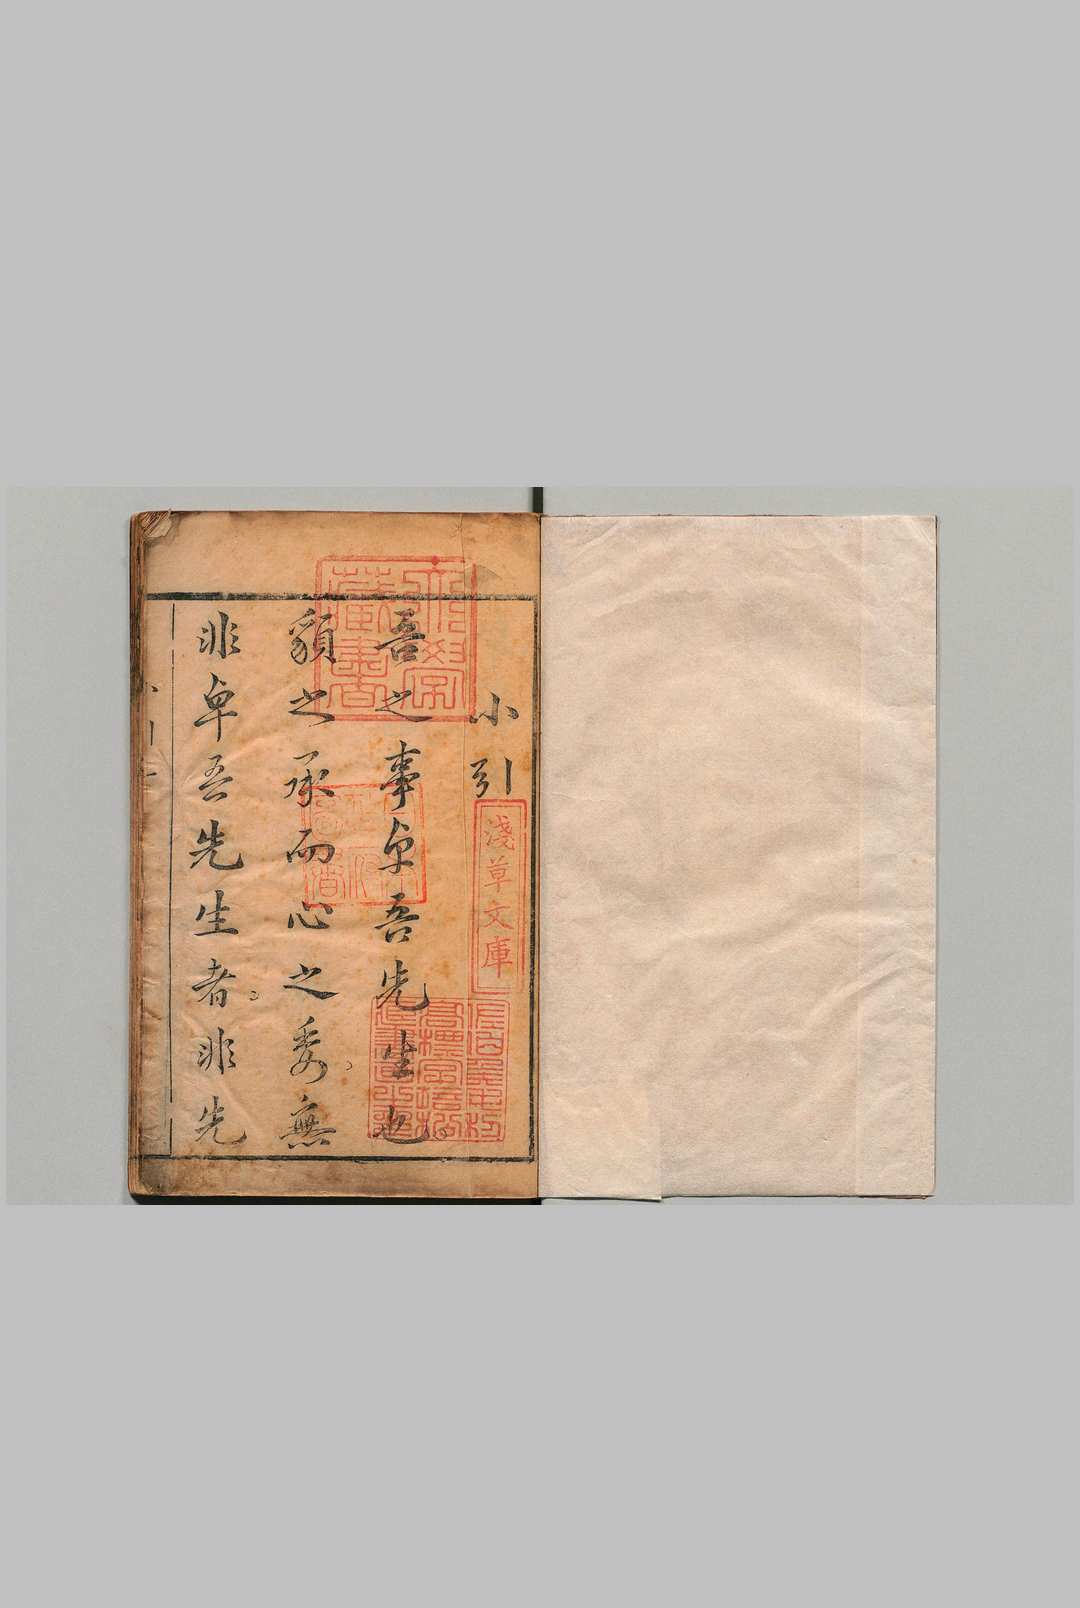 小引
吾之事卓吾先生也
貌之承而心之委無
非卓吾先生者非先
淺草文庫
藏書
小引 一